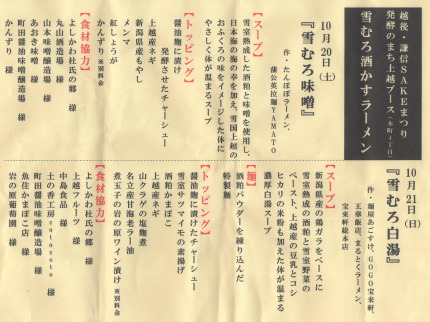 越後・謙信SAKEまつり
発酵のまち上越ブース（本町4丁目）
雪むろ酒かすラーメン
10月20日（土）
『雪むろ味噌』
作・たんぽぽラーメン、
蒲公英拉麺YAMATO
【スープ】
雪室熟成した酒粕と味噌を使用し、
日本海の海の幸を加え、雪国上越の
おふくろの味をイメージした体に
やさしく体が温まるスープ
【トッピング】
醤油麹に漬けて
発酵させたチャーシュー
上越産ネギ
新潟県産もやし
メンマ
紅しょうが
かんずり ※別料金
【食材協力】
よしかわ杜氏の郷 様
丸山酒造場 様
あおき味噌 様
山本味噌醸造場 様
町田醤油味噌醸造場 様
かんずり 様
10月21日（日）
『雪むろ白湯』
作・麺屋あごすけ、GOGO宝来軒、
王華飯店、まるとくラーメン、
宝来軒総本店
【スープ】
新潟県産の鶏ガラをベースに
雪室熟成の酒粕と雪室野菜の
ペースト、上越産の豆乳とコシ
ヒカリの米粉も加えた体が温まる
濃厚白湯スープ
【麺】
酒粕パウダーを練り込んだ
特製麺
【トッピング】
醤油麹に漬けたチャーシュー
雪室サツマイモの素揚げ
酒粕かまぼこ
上越産ネギ
名立産甘海老ラー油
山クラゲの塩麹煮
煮玉子の岩の原ワイン漬け ※別料金
【食材協力】
よしかわ杜氏の郷 様
上越フルーツ 様
中島食品 様
土の香工房 様
町田醤油味噌醸造場 様
魚住かまぼこ店 様
岩の原葡萄園 様